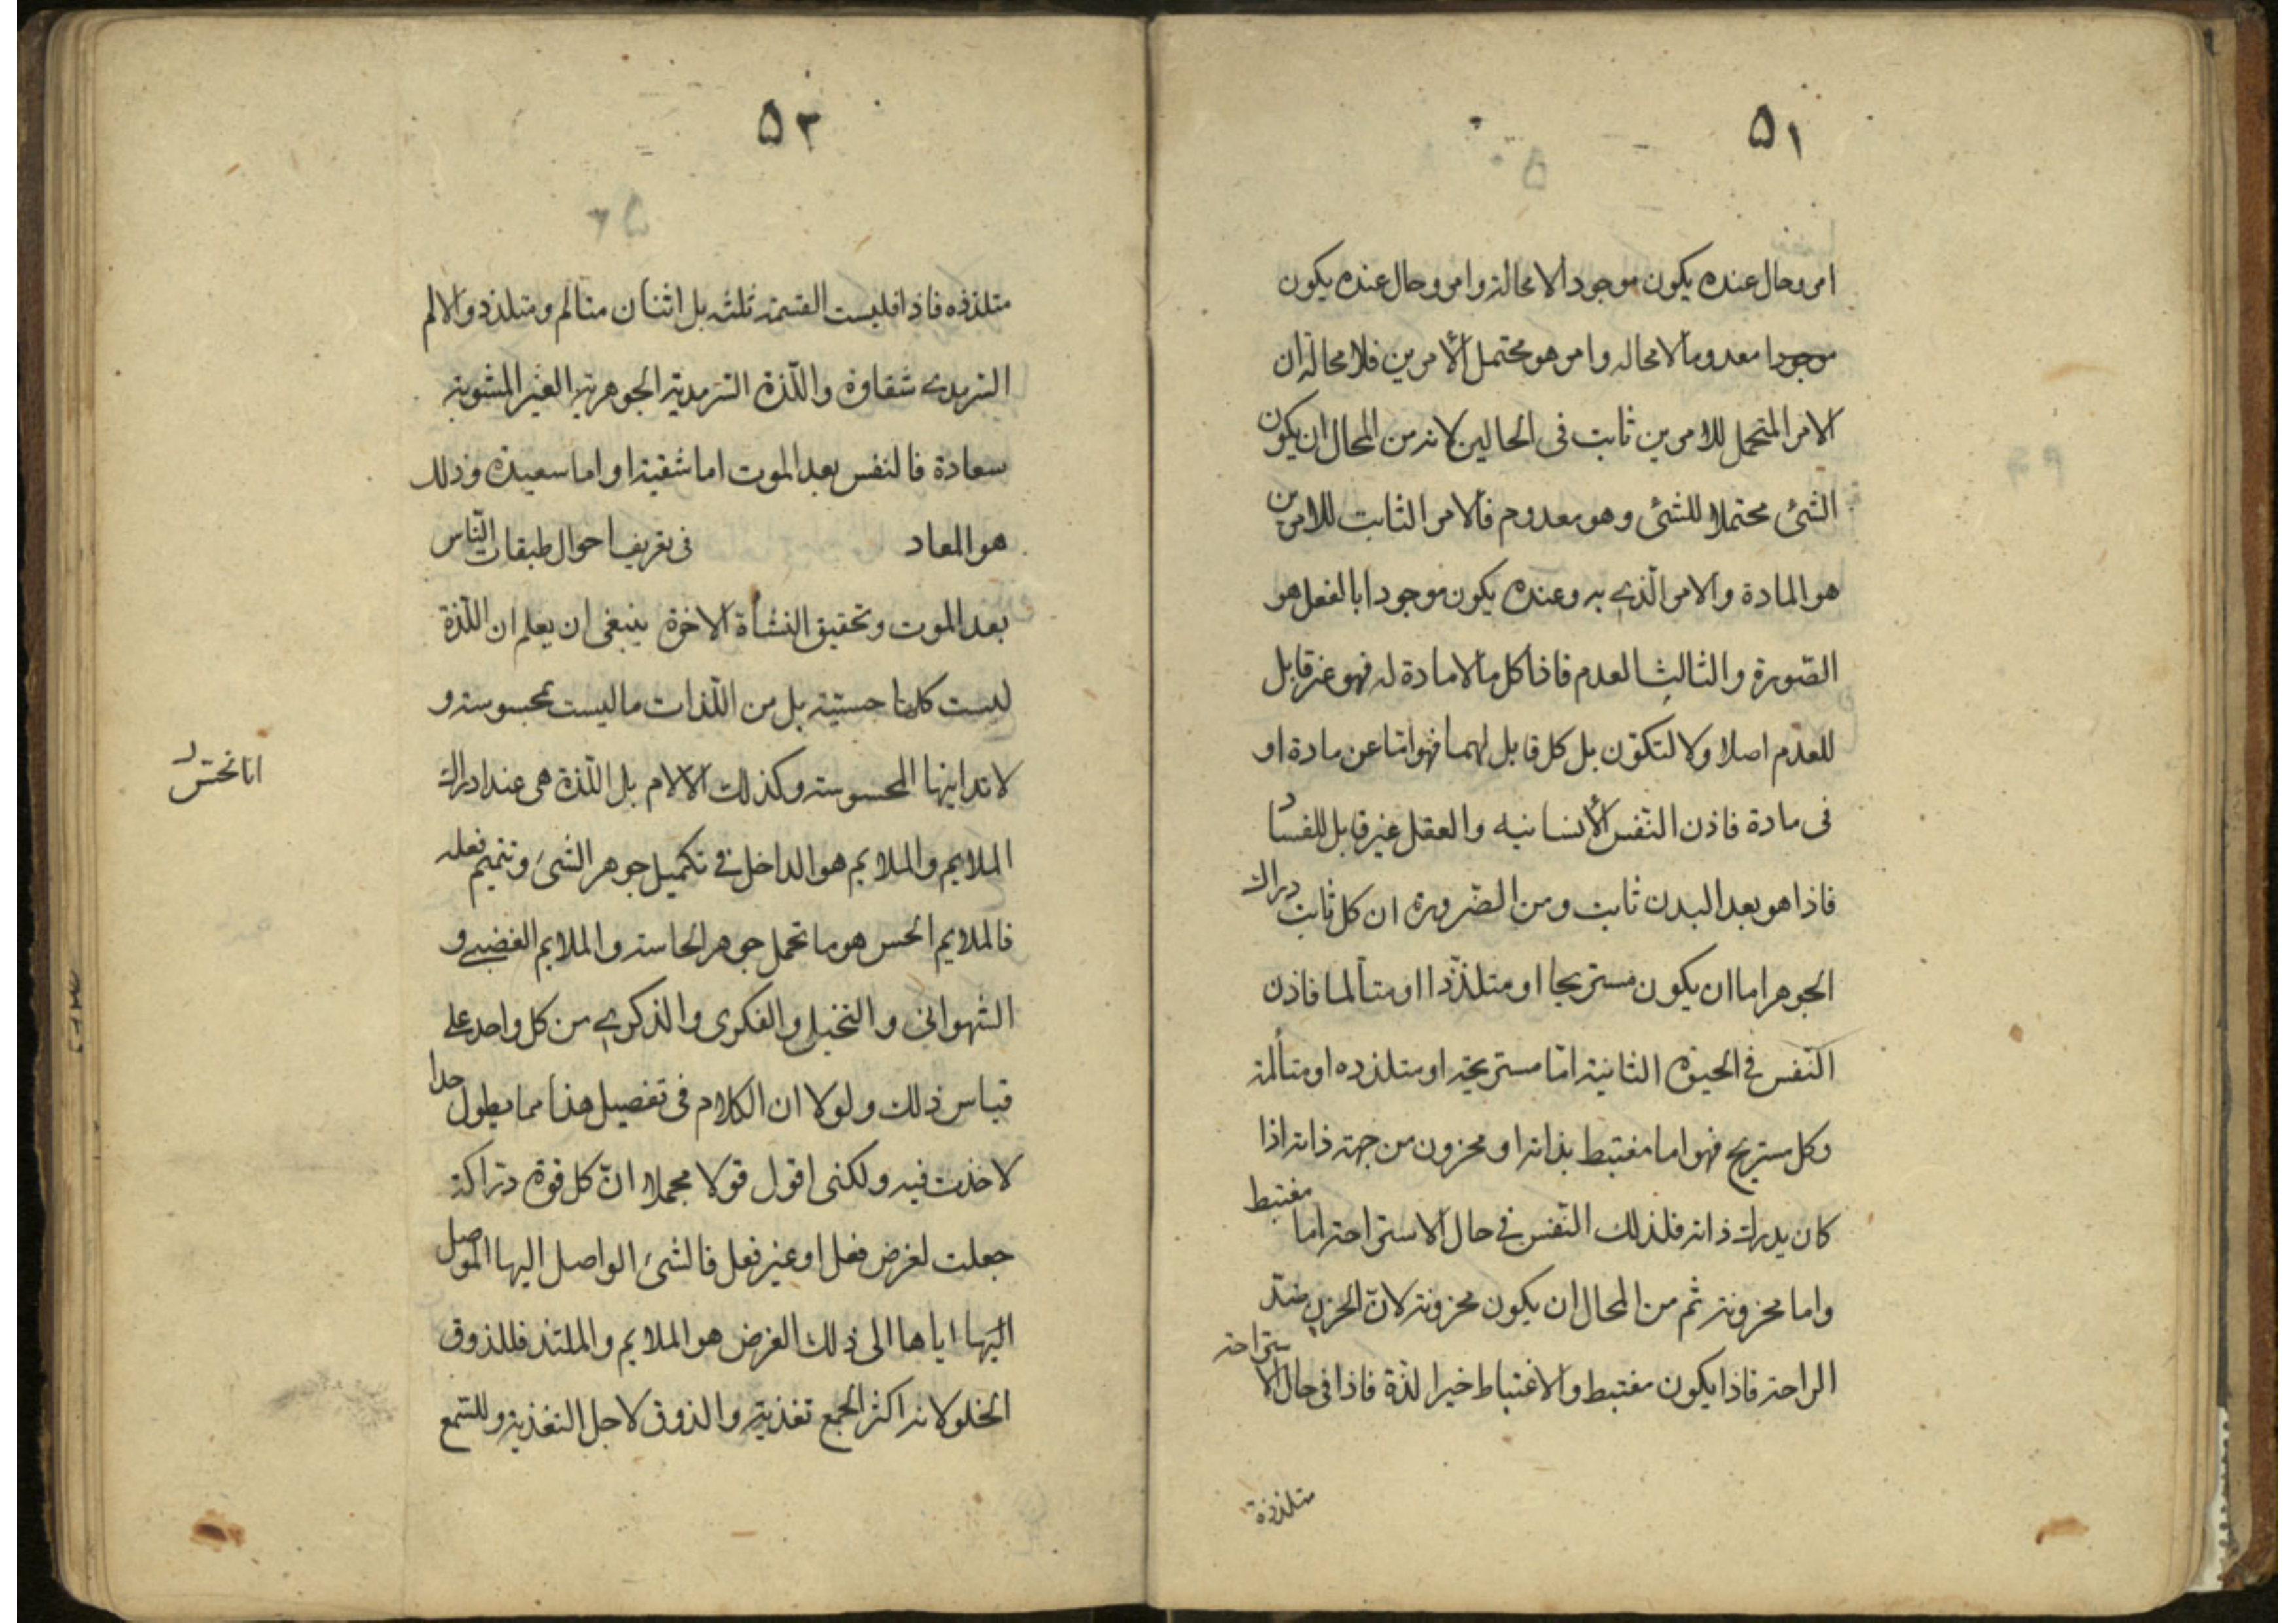 ٥١
امر وحال عنده يكون موجودا لا محالة وامر وحال عنده يكون
موجودا معدوما لا محاله وامر هو محتمل الأمرين فلا محالة ان
الامر المتحمل للامرين ثابت فى الحالين لانه من المحال ان يكون
الشئ محتملا للشئ وهو معدوم فالامر الثابت للامرين
هو المادة والامر الّذي به وعنده يكون موجودا بالفعل هو
الصّورة والثالث العدم فاذا كل ما لا مادة له فهو غير قابل
للعدم اصلا ولا لتكوّن بل كل قابل لهما فهو اما عن مادة او
فى مادة فاذن النّفس الأنسانيه والعقل غير قابل للفساد
فاذا هو بعد البدن ثابت ومن الضّرورة ان كل ثابت دراك
الجوهر اما ان يكون مستريحا او متلذّذا او متألما فاذن
النّفس في الحيوة الثانية امّا مستريحة او متلذذه او متألمة
وكل مستريح فهو اما مغتبط بذاته او محزون من جهة ذاته اذا
كان يدرك ذاته فلذلك النّفس في حال الاستراحة اما مغتبط
واما محزونة ثم من المحال ان يكون محزونة لانّ الحزن ضدّ
الراحة فاذا يكون مغتبط والاغتباط خير الذّة فاذا فى حال الاستراحة
متلذذة
٥٢
متلذذه فاذا فليست القسمة ثلثه بل اثنان متألم ومتلذد والالم
السّرمدي شقاوة واللّذة السّرمدية الجوهرية الغير المشوبة
سعادة فالنفس بعد الموت اما شقية او اما سعيدة وذلك
هو المعاد في تعريف احوال طبقات النّاس
بعد الموت وتحقيق النشأة الاخرة ينبغى ان يعلم ان اللّذة
ليست كلها حسّيّة بل من اللّذات ما ليست بمحسوسة و
لا تدانيها المحسوسة وكذلك الالام بل اللّذة هى عند ادراك
الملايم والملايم هو الداخل في تكميل جوهر الشئ وتتميم فعله
فالملايم الحس هو ما تحمل جوهر الحاسة والملايم الغضبي و
الشهواني والتخيل والفكرى والذكري من كل واحد على
قياس ذلك ولولا ان الكلام فى تفصيل هذا مما يطول جدا
لاخذت فيه ولكنى اقول قولا مجملا انّ كل قوة درّاكة
جعلت لغرض فعل او غير فعل فالشئ الواصل اليها الموصل
اليها اياها الى ذلك الغرض هو الملايم والملتذ فللذوق
الحلو لانه اكثر الجمع تغذية والذوق لاجل التغذية وللسّمع